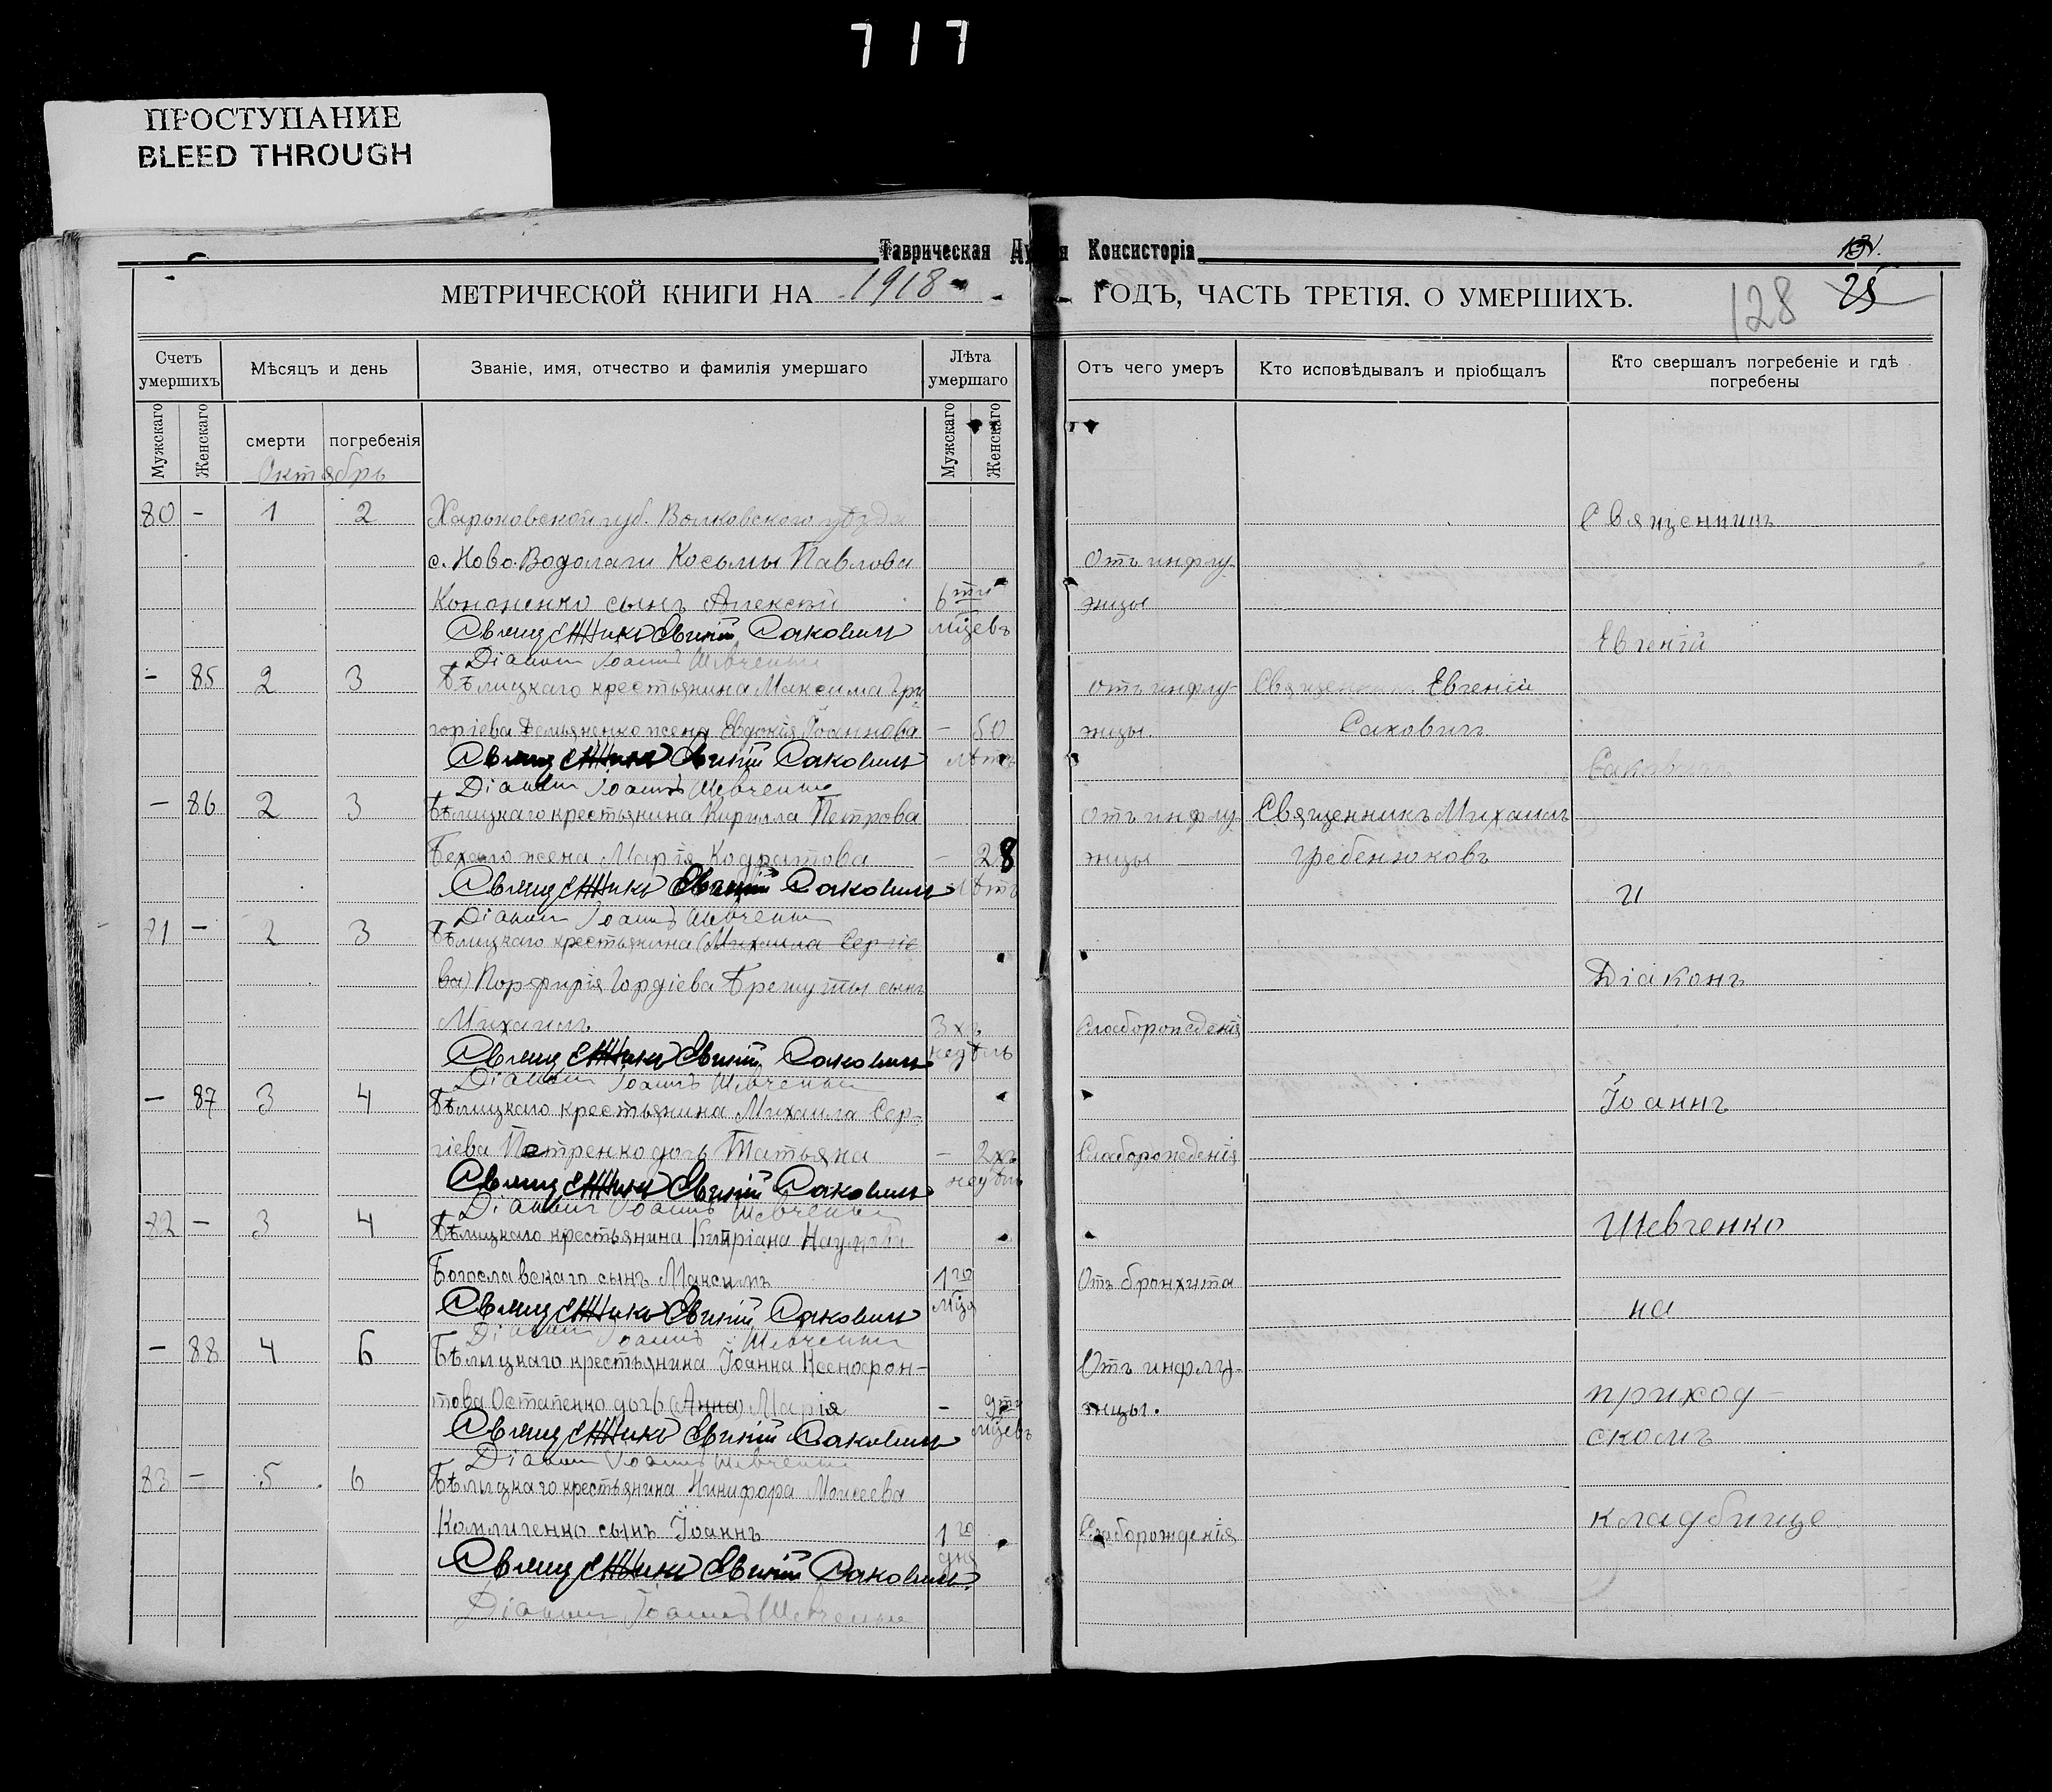 717
ПРОСТУПАНИЕ
BLEED THROUGH
Таврическая Ду я Консисторія
МЕТРИЧЕСКОЙ КНИГИ НА 1918 ГОДЪ, ЧАСТЬ ТРЕТІЯ. О УМЕРШИХЪ.
128 25
Счетъ умершихъ
Мѣсяцъ и день
Званіе, имя, отчество и фамилія умершаго
Лѣта умершаго
Отъ чего умеръ
Кто исповѣдывалъ и пріобщалъ
Кто свершалъ погребеніе и гдѣ погребены
Мужскаго
Женскаго
смерти
погребенія
Мужскаго
Женскаго
Октябрь
80 - 1 2 Харьковской губ. Волковского уѣзда Священникъ
с. Ново-Водолаги Косьмы Павлова Отъ инфлу-
Кононенко сынъ Алексѣй 6ти энцы
Священникъ Евгеній Саковичъ мѣцевъ Евгеній
Діаконъ Іоаннъ Шевченко
- 85 2 3 Бѣлицкаго крестьянина Максима Гри Отъ инфлу- Священникъ Евгеній
горіева Демьяненко жена Евдокія Іоаннова - 50 энцы. Саковичъ
Священникъ Евгеній Саковичъ лѣтъ Саковичъ
Діаконъ Іоаннъ Шевченко
- 86 2 3 Бѣлицкаго крестьянина Кирилла Петрова Отъ инфлу Священникъ Михаилъ
жена Марія Кодратова - 28 энцы Гребенюковъ
Священникъ Евгеній Саковичъ лѣтъ и
Діаконъ Іоаннъ Шевченко
81 - 2 3 Бѣлицкаго крестьянина (Михаила Сергіе
ва) Порфирія Гордіева сынъ Діаконъ
Михаилъ 3хъ Слаборожденія
Священникъ Евгеній Саковичъ недѣль
Діаконъ Іоаннъ Шевченко
- 87 3 4 Бѣлицкаго крестьянина Михаила Сер- Іоаннъ
гіева Петренко дочь Татьяна - 2хъ Слаборожденія
Священникъ Евгеній Саковичъ недѣль
Діаконъ Іоаннъ Шевченко
82 - 3 4 Бѣлицкаго крестьянина Кипріана Наумова Шевченко
Богославскаго сынъ Максимъ 1го Отъ бронхита
Священникъ Евгеній Саковичъ мѣця на
Діаконъ Іоаннъ Шевченко
- 88 4 6 Бѣлицкаго крестьянина Іоанна Ксенофон- Отъ инфлу-
това Остапенко дочь (Анна) Марія - 9ти энцы. приход-
Священникъ Евгеній Саковичъ мѣцевъ скомъ
Діаконъ Іоаннъ Шевченко
83 - 5 6 Бѣлицкаго крестьянина Никифора Моисеева
сынъ Іоаннъ 1го Слаборожденія кладбище
Священникъ Евгеній Саковичъ. дня
Діаконъ Іоаннъ Шевченко